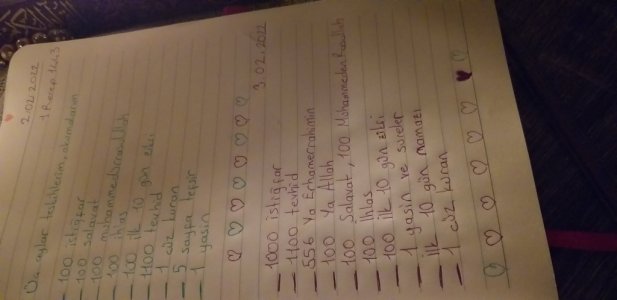 2.02.2022
1 Recep 1443
Üç aylar tesbihlerim, okumalarım
- 100 istiğfar
- 100 salavat
- 100 muhammedürrasulllah
- 100 ihlas
- 100 ilk 10 gün zikri
- 1100 tevhid
- 1 cüz kuran
- 5 sayfa tefsir
- 1 yasin
3.02.2022
- 1000 istiğfar
- 1100 tevhid
- 556 Ya Erhamerrahimin
- 100 Ya Allah
- 100 Salavat, 100 Muhammeden Rasulullah
- 100 ihlas
- 100 ilk 10 gün zikri
- 1 yasin ve sureler
- ilk 10 gün namazı
- 1 cüz kuran